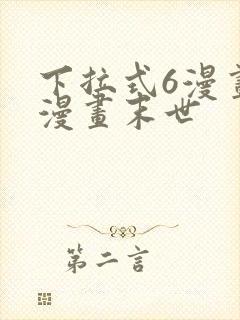 下拉式6漫畫
漫畫末世
第二言